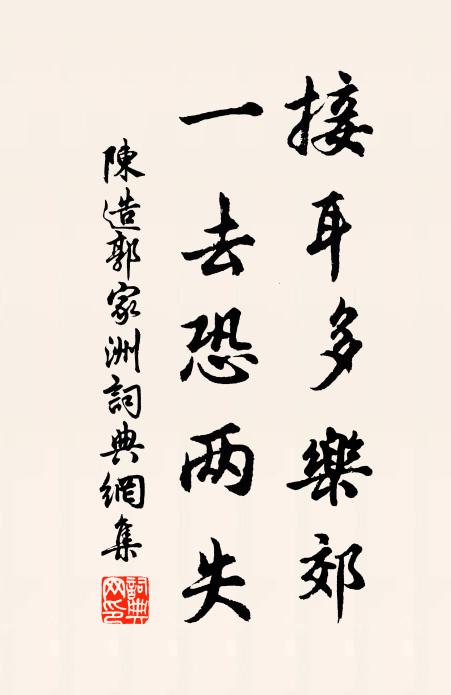 接耳多樂郊
一去恐两失
陳造郭家洲詞典網集
詞典網印